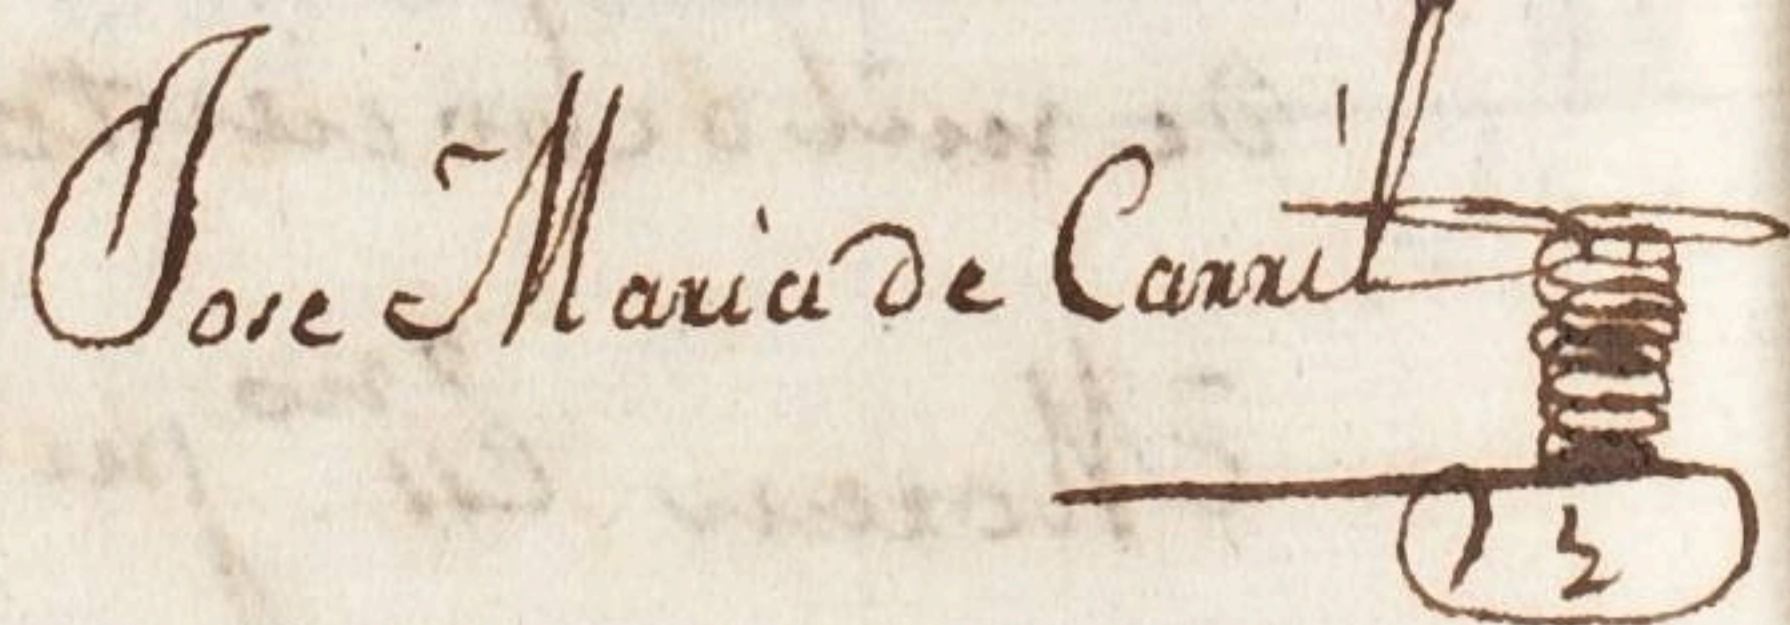 Jose Maria de Carril